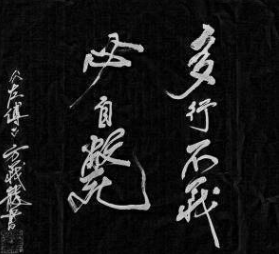 多行不義
必自斃
左傳
書